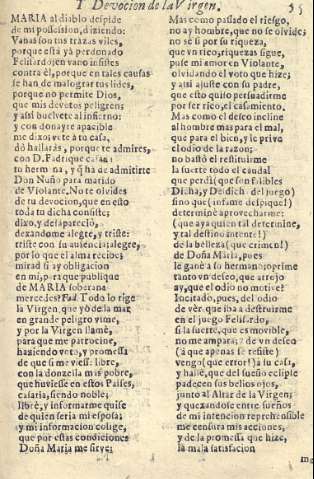 Y Devocion de la Virgen. 35
MARIA al diablo despide
de mi possession, diziendo:
Vanas son tus trazas viles,
porque està ya perdonado
Felisardo; en vano insistes
contra èl, porque en tales causas
se han de malograr tus lides,
porque no permite Dios,
que mis devotos peligren;
y assi buelvete al infierno:
y con donayre apacible
me dixo: vete à tu casa,
dò hallaràs, porque te admires,
con D. Fadrique casada
tu hermana, y q̃ ha de admitirte
Don Nuño para marido
de Violante. No te olvides
de tu devocion, que en esto
toda tu dicha consiste;
dixo, y desapareciò,
dexandome alegre, y triste:
triste con su ausencia; alegre,
por lo que el alma recibe:
mirad si ay obligacion
en mi, para que publique
de MARIA soberana
mercedes? Fad. Todo lo rige
la Virgen, que yo de la mar
en grande peligro vime,
y por la Virgen llamè,
para que me patrocine,
haziendo voto, y promessa
de que si me viesse libre,
con la donzella mas pobre,
que huviesse en estos Paises,
casaria, siendo noble;
librè, y informarme quise
de quien seria mi esposa;
y mi informacion colige,
que por estas condiciones
Doña Maria me sirve;
Mas como passado el riesgo,
no ay hombre, que no se olvide;
no sè si por su riqueza,
que vn rico, riquezas sigue,
puse mi amor en Violante,
olvidando el voto que hize;
y assi ajuste con su padre,
que esto quito persuadirme
por ser rico, el casamiento.
Mas como el deseo incline
al hombre mas para el mal,
que para el bien, y le prive
el odio de la razon;
no bastò el restituirme
la suerte todo el caudal
que perdi (que son falibles
Dicha, y Desdicha del juego)
sino que (infame despique!)
determinè aprovecharme:
(que aya quien tal determine,
y tal destino intente!)
de la belleza (que crimen!)
de Doña Maria, pues
le ganè à su hermano; oprime
tanto vn deseo, que arrojo
ay, que el odio no motive?
Incitado, pues, del odio
de vèr que iba à destruirme
en el juego Felisardo,
si la suerte, que es movible,
no me ampara: de vn deseo
(à que apenas se resiste)
vengo (què error!) à tu casa,
y hallè, que del sueño eclipse
padecen sus bellos ojos,
junto al Altar de la Virgen;
y quexandose entre sueños
de mi intencion reprehensible
me censura mis acciones,
y de la promessa que hize,
la mala satisfacion